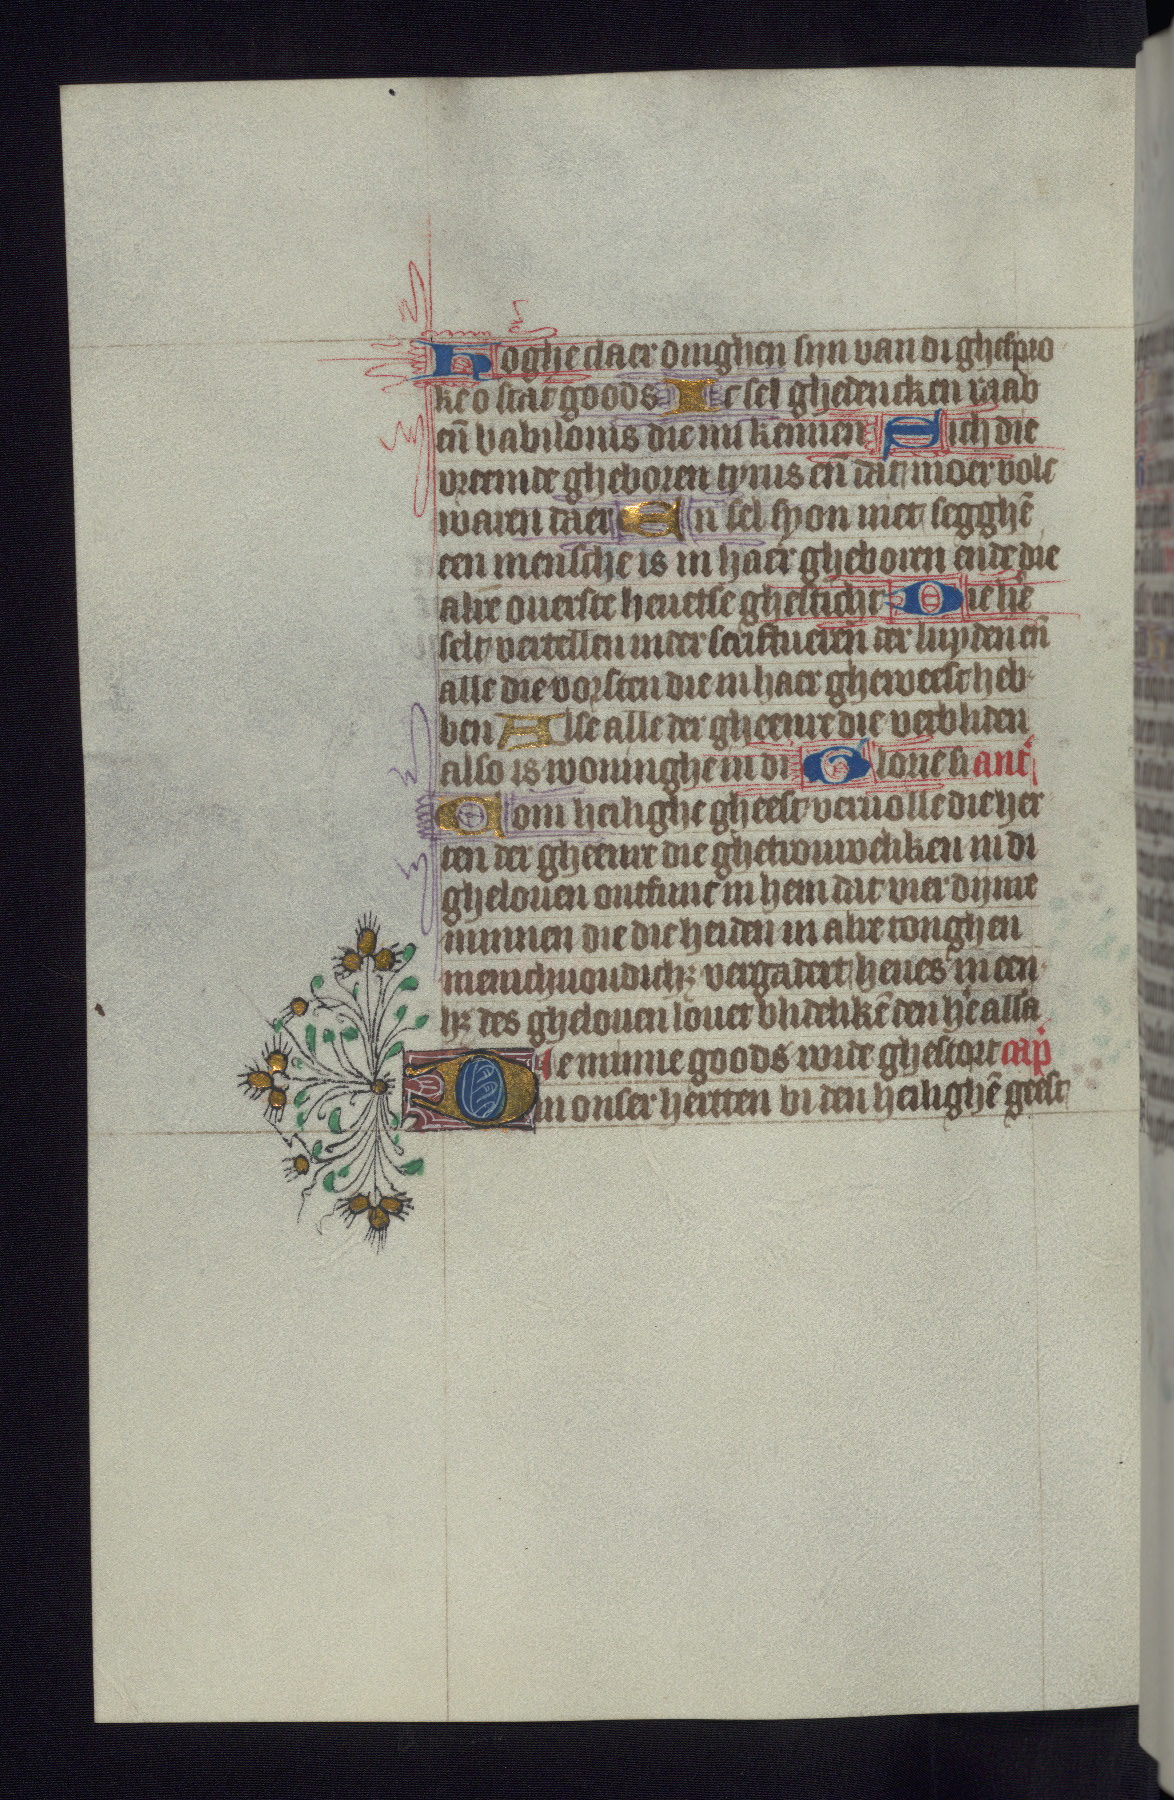 Hoghe claer dinghen sijn van di ghespro
kē o stat goods Ic sel ghedencken raab
eñ babilonis die mi kennen Sich die
vreemde gheboren tyrus eñ dat moer volc
waren daer En sel syon niet segghē
een mensche is in haer gheboren ende die
alre ouerste heuetse ghesticht Die hē
selt vertellen in der scriftuerē der luyden eñ
alle die vorsten die in haer gheweest heb
ben Alse alle der gheenre die verbliden
also is woninghe in di Glorie si ant
Com heilighe gheest veruolle die her
ten der gheenre die ghetrouweliken in di
ghelouen ontfunc in hem dat vier dijnre
minnen die die heiden in alre tonghen
menichuoudichꝫ vergadert heues in een
hꝫ des ghelouen louet blidelikē den hē alla
Die minne goods wide ghestort cap
in onser hertten bi den heilighē geest